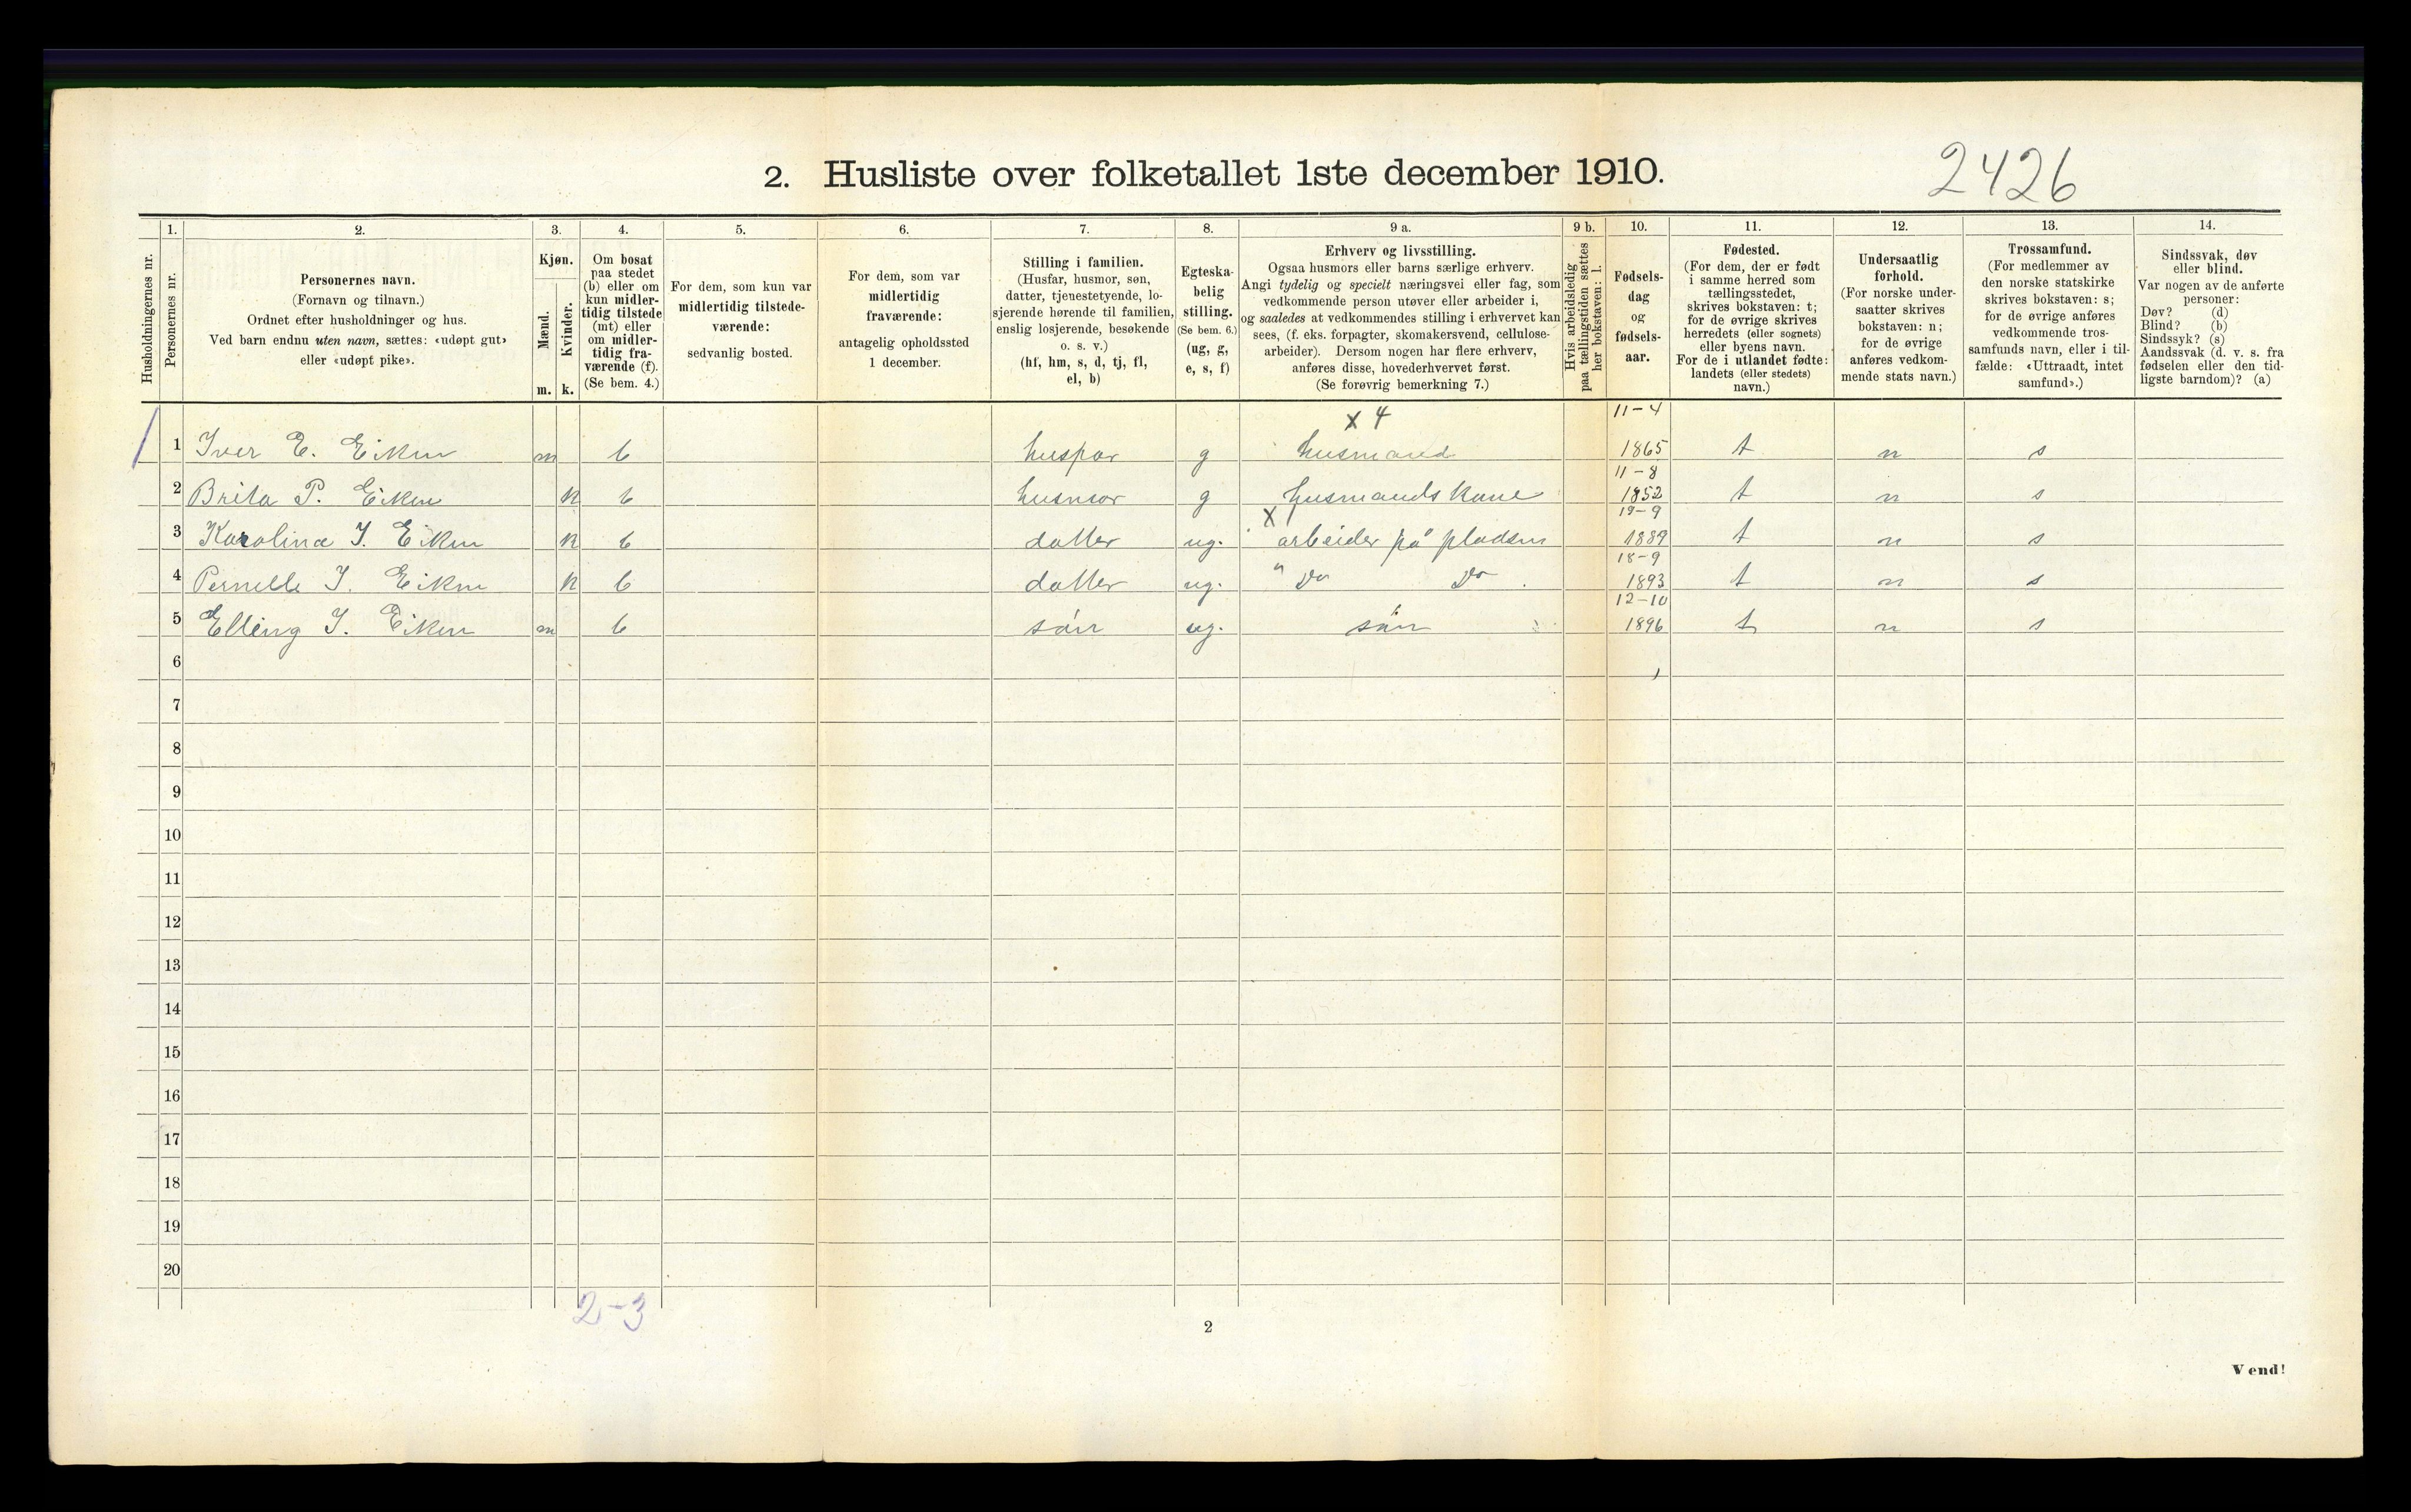 2. Husliste over folketallet 1ste december 1910.
2426
Husholdningernes nr.
1.
Personernes nr.
2.
Personernes navn.
(Fornavn og tilnavn.)
Ordnet efter husholdninger og hus.
Ved barn endnu uten navn, sættes: «udøpt gut»
eller «udøpt pike».
3.
Kjøn.
Mænd.
m.
Kvinder.
k.
4.
Om bosat
paa stedet
(b) eller om
kun midler-
tidig tilstede
(mt) eller
om midler-
tidig fra-
værende (f).
(Se bem. 4.)
5.
For dem, som kun var
midlertidig tilstede-
værende:
sedvanlig bosted.
6.
For dem, som var
midlertidig
fraværende:
antagelig opholdssted
1 december.
7.
Stilling i familien.
(Husfar, husmor, søn,
datter, tjenestetyende, lo-
sjerende hørende til familien,
enslig losjerende, besøkende
o. s. v.)
(hf, hm, s, d, tj, fl,
el, b)
8.
Egteska-
belig
stilling.
(Se bem. 6.)
(ug, g,
e, s, f)
9 a.
Erhverv og livsstilling.
Ogsaa husmors eller barns særlige erhverv.
Angi tydelig og specielt næringsvei eller fag, som
vedkommende person utøver eller arbeider i,
og saaledes at vedkommendes stilling i erhvervet kan
sees, (f. eks. forpagter, skomakersvend, cellulose-
arbeider). Dersom nogen har flere erhverv,
anføres disse, hovederhvervet først.
(Se forøvrig bemerkning 7.)
9 b.
Hvis arbeidsledig
paa tællingstiden sættes
her bokstaven: l.
10.
Fødsels-
dag
og
fødsels-
aar.
11.
Fødested.
(For dem, der er født
i samme herred som
tællingsstedet,
skrives bokstaven: t;
for de øvrige skrives
herredets (eller sognets)
eller byens navn.
For de i utlandet fødte:
landets (eller stedets)
navn.)
12.
Undersaatlig
forhold.
(For norske under-
saatter skrives
bokstaven: n;
for de øvrige
anføres vedkom-
mende stats navn.)
13.
Trossamfund.
(For medlemmer av
den norske statskirke
skrives bokstaven: s;
for de øvrige anføres
vedkommende tros-
samfunds navn, eller i til-
fælde: «Uttraadt, intet
samfund».)
14.
Sindssvak, døv
eller blind.
Var nogen av de anførte
personer:
Døv? (d)
Blind? (b)
Sindssyk? (s)
Aandssvak (d. v. s. fra
fødselen eller den tid-
ligste barndom)? (a)
x 4 11-4
1 Iver E. Eiken m b husfar g husmand 1865 t n s
11-8
2 Brita P. Eiken k b husmor g husmandskone 1852 t n s
x 19-9
3 Karolina I. Eiken k b datter ug. arbeider på pladsen 1889 t n s
18-9
4 Pernille I. Eiken k b datter ug. " Do Do. 1893 t n s
12-10
5 Elling I. Eiken m b sön ug. sön 1896 t n s
6
7
8
9
10
11
12
13
14
15
16
17
18
19
20
2-3
2
Vend!